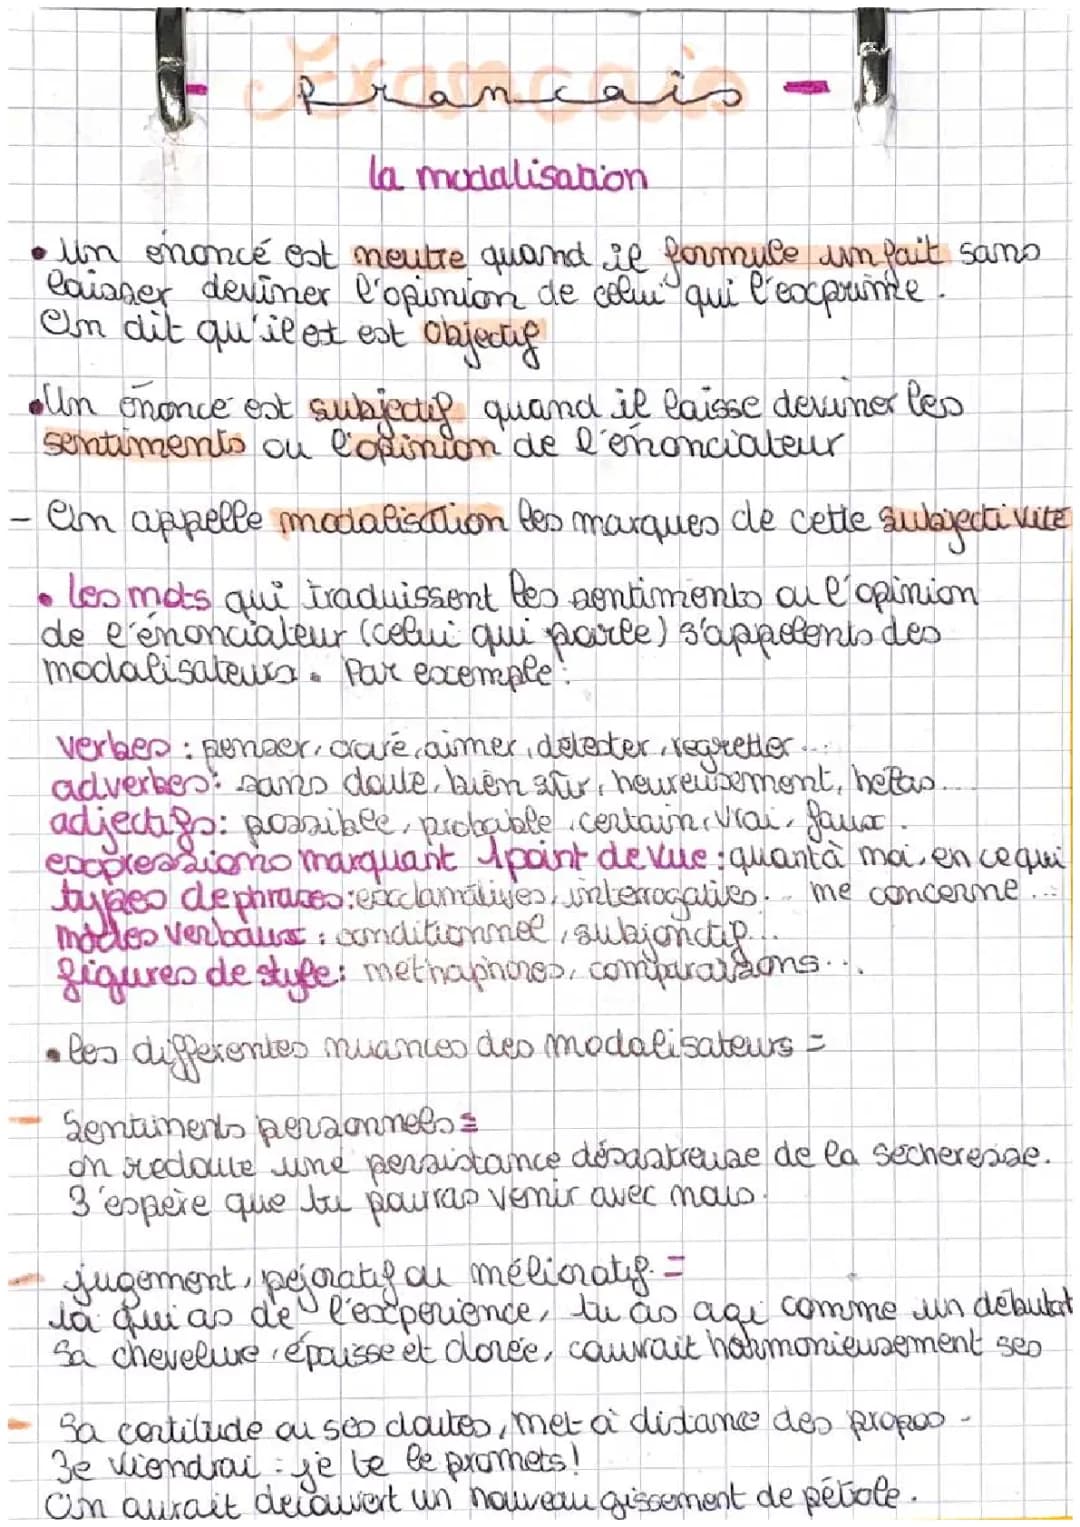 Francais
- Francais -
la modalisation
• Un énoncé est neutre quand il formule un fait sans
laisser deviner l'opinion de celui qui l'exprime.
On dit qu'il est est objectif
• Un énonce est subjectif quand il laisse deviner les
sentiments ou l'opinion de l'énonciateur
- On appelle modalisation les marques de cette subjectivité
• les mots qui traduissent les sentiments ou l'opinion
de l'énonciateur (celui qui parle) s'appelents des
modalisateurs. Par exemple :
verbes : penser, croire, aimer, détester, regretter...
adverbes : sans doute, bien sûr, heureusement, hélas....
adjectifs : possible, probable, certain, vrai, faux.
expressions marquant 1 point de vue : quantà moi, en ce qui
types de phrases : exclamatives, interrogatives... me concerne...
modes verbaux : conditionnel, subjonctif...
figures de style : méthaphores, comparaisons...
• les differentes nuances des modalisateurs =
- Sentiments personnels =
on redoute une persistance désastreuse de la sécheresse.
J'espère que tu pourras venir avec nous.
- jugement, pejoratif ou mélioratif. =
tà qui as de l'expérience, tu as agi comme un débutant
Sa chevelure, épaisse et dorée, couvrait harmonieusement ses
- Sa certitude ou ses doutes, met à distance des propos -
Je viendrai : je te le promets !
On aurait découvert un nouveau gissement de pétrole.